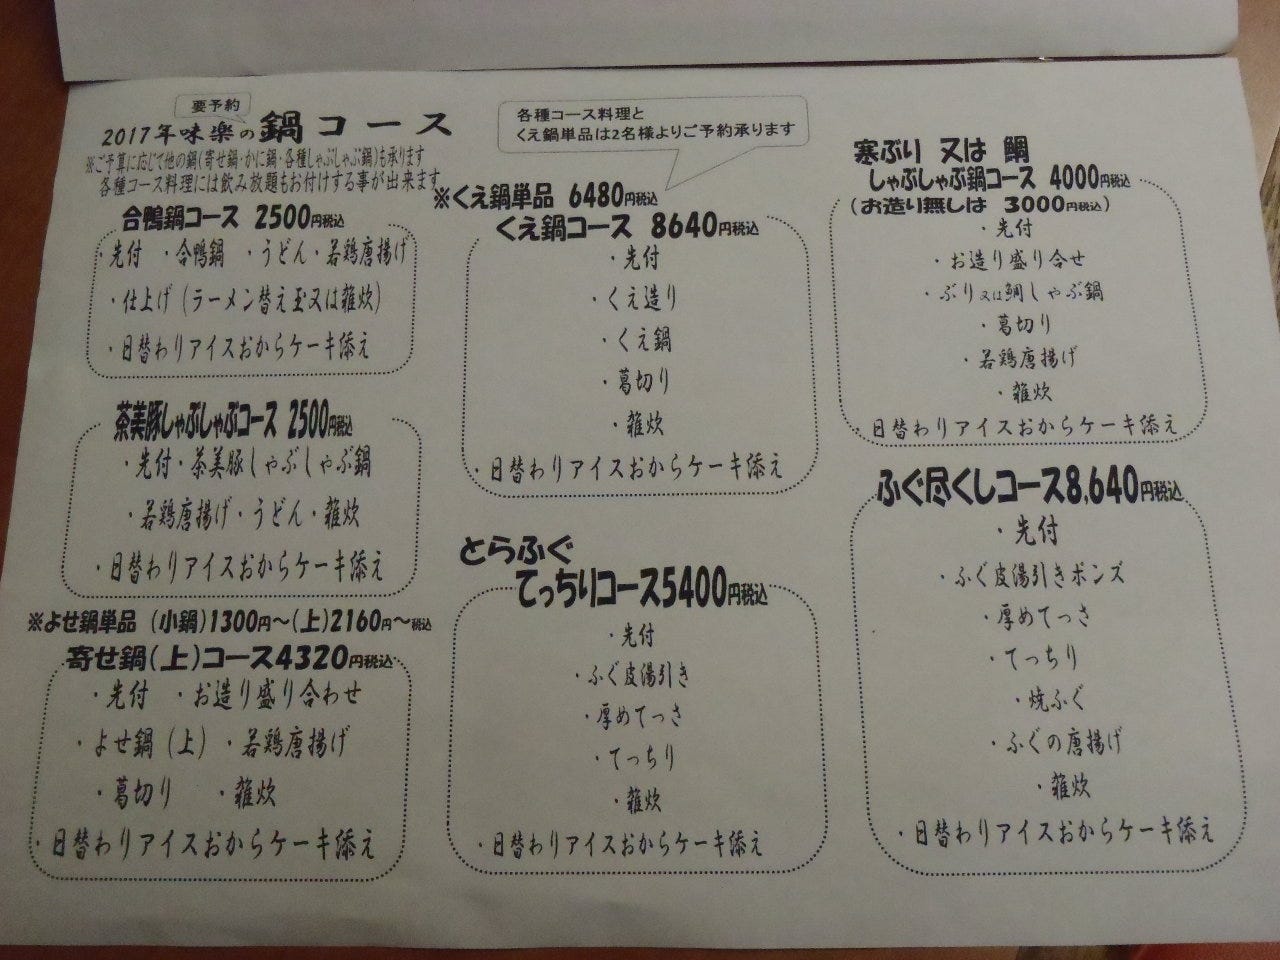 要予約
2017年味楽の鍋コース
※ご予算に応じて他の鍋(寄せ鍋・かに鍋・各種しゃぶしゃぶ鍋)も承ります
各種コース料理には飲み放題もお付けする事が出来ます
合鴨鍋コース 2500円税込
・先付 ・合鴨鍋 ・うどん・若鶏唐揚げ
・仕上げ(ラーメン替え玉又は雑炊)
・日替わりアイスおからケーキ添え
茶美豚しゃぶしゃぶコース 2500円税込
・先付・茶美豚しゃぶしゃぶ鍋
・若鶏唐揚げ・うどん・雑炊
・日替わりアイスおからケーキ添え
※よせ鍋単品 (小鍋)1300円~(上)2160円~税込
寄せ鍋(上)コース4320円税込
・先付 ・お造り盛り合わせ
・よせ鍋(上) ・若鶏唐揚げ
・葛切り ・雑炊
・日替わりアイスおからケーキ添え
各種コース料理と
くえ鍋単品は2名様よりご予約承ります
※くえ鍋単品 6480円税込
くえ鍋コース 8640円税込
・先付
・くえ造り
・くえ鍋
・葛切り
・雑炊
・日替わりアイスおからケーキ添え
とらふぐ
てっちりコース5400円税込
・先付
・ふぐ皮湯引き
・厚めてっさ
・てっちり
・雑炊
・日替わりアイスおからケーキ添え
寒ぶり 又は 鯛
しゃぶしゃぶ鍋コース 4000円税込
(お造り無しは 3000円税込)
・先付
・お造り盛り合せ
・ぶり又は鯛しゃぶ鍋
・葛切り
・若鶏唐揚げ
・雑炊
・日替わりアイスおからケーキ添え
ふぐ尽くしコース8,640円税込
・先付
・ふぐ皮湯引きポンズ
・厚めてっさ
・てっちり
・焼ふぐ
・ふぐの唐揚げ
・雑炊
・日替わりアイスおからケーキ添え